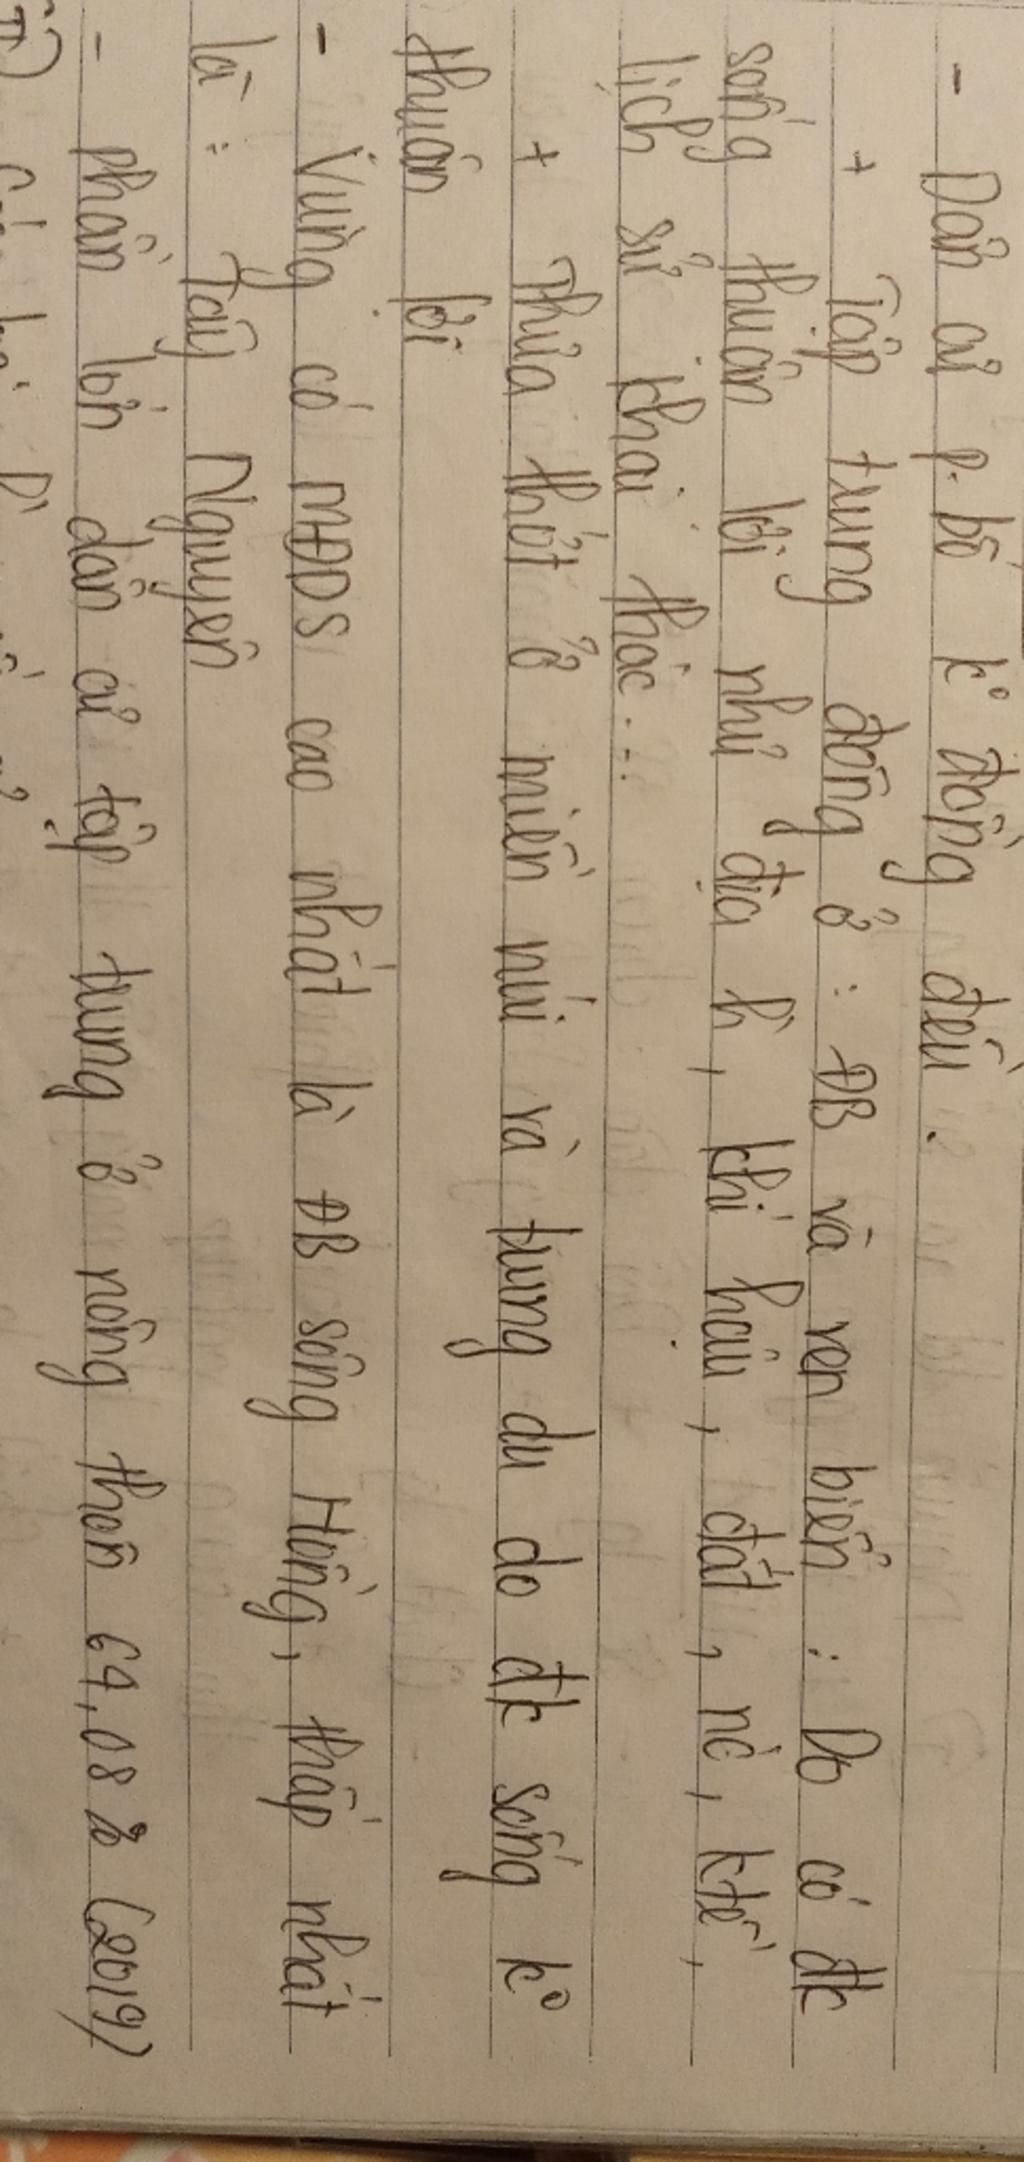 - Dân cư p.bố k° đồng đều.
+ Tập trung đông ở : ĐB và ven biển : Do có đk
sống thuận lợi như địa h`, khí hậu, đất, nc, ktế,
lịch sử khai thác...
+ Thưa thớt ở miền núi và trung du do đk sống k°
thuận lợi
- Vùng có MĐDS cao nhất là ĐB sông Hồng, thấp nhất
là : Tây Nguyên
- phần lớn dân cư tập trung ở nông thôn 64,08 % (2019)